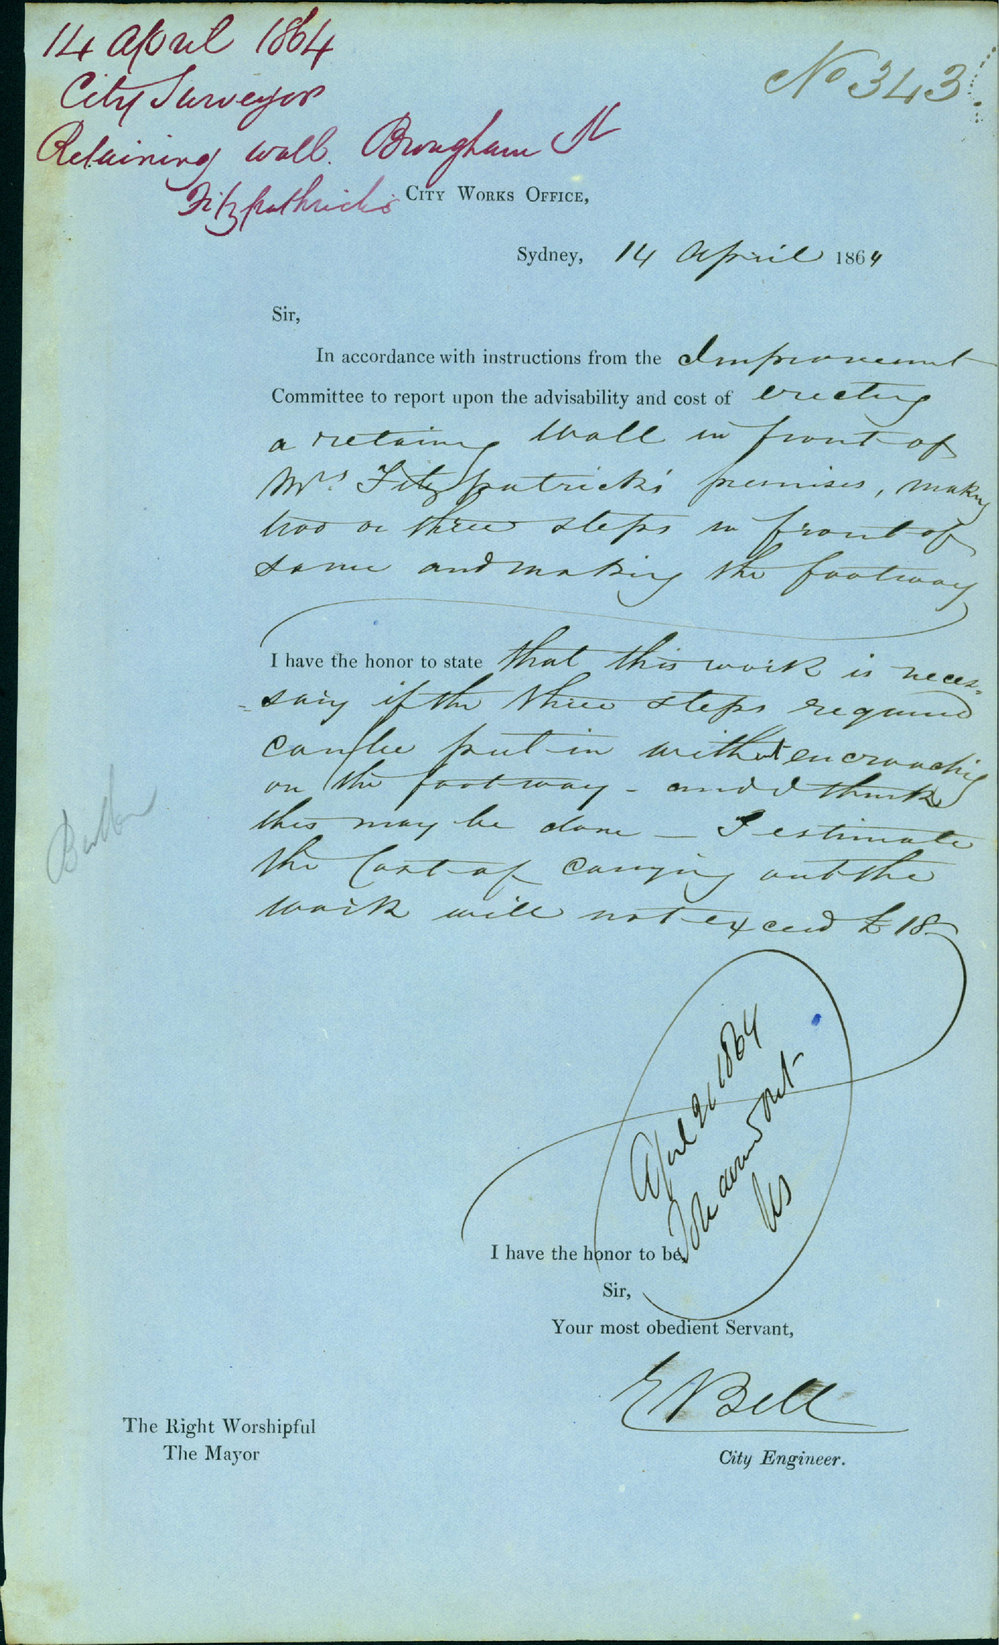 14 April 1864
City Surveyor
Retaining wall. Brougham St
Fitzpathrick's
No 343
City Works Office,
Sydney, 14 April 1864
Sir,
In accordance with instructions from the Improvement
Committee to report upon the advisability and cost of erecting
a retaining wall in front of
Mrs. Fitzpatrick's premises, making
two or three steps in front of
same and making the footway
I have the honor to state that this work is neces-
-sary if the three steps required
can be put in without encroaching
on the footway - and I think
this may be done - I estimate
the Cost of carrying out the
work will not exceed £18-
April 21 1864
To be carried out
I have the honor to be,
Sir,
Your most obedient Servant,
E Bell
City Engineer.
The Right Worshipful
The Mayor